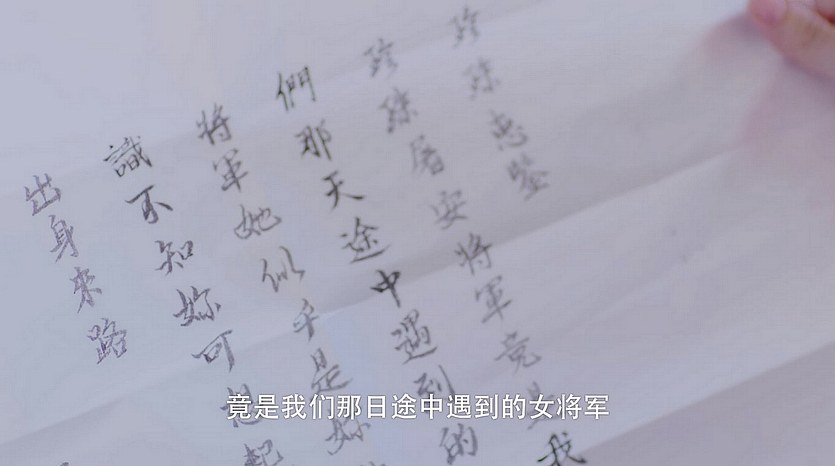 珍珠惠鑒
珍珠屠安將軍竟是我
們那天途中遇到的
將軍她似乎是妳
識不知妳可想起
出身來路
竟是我们那日途中遇到的女将军